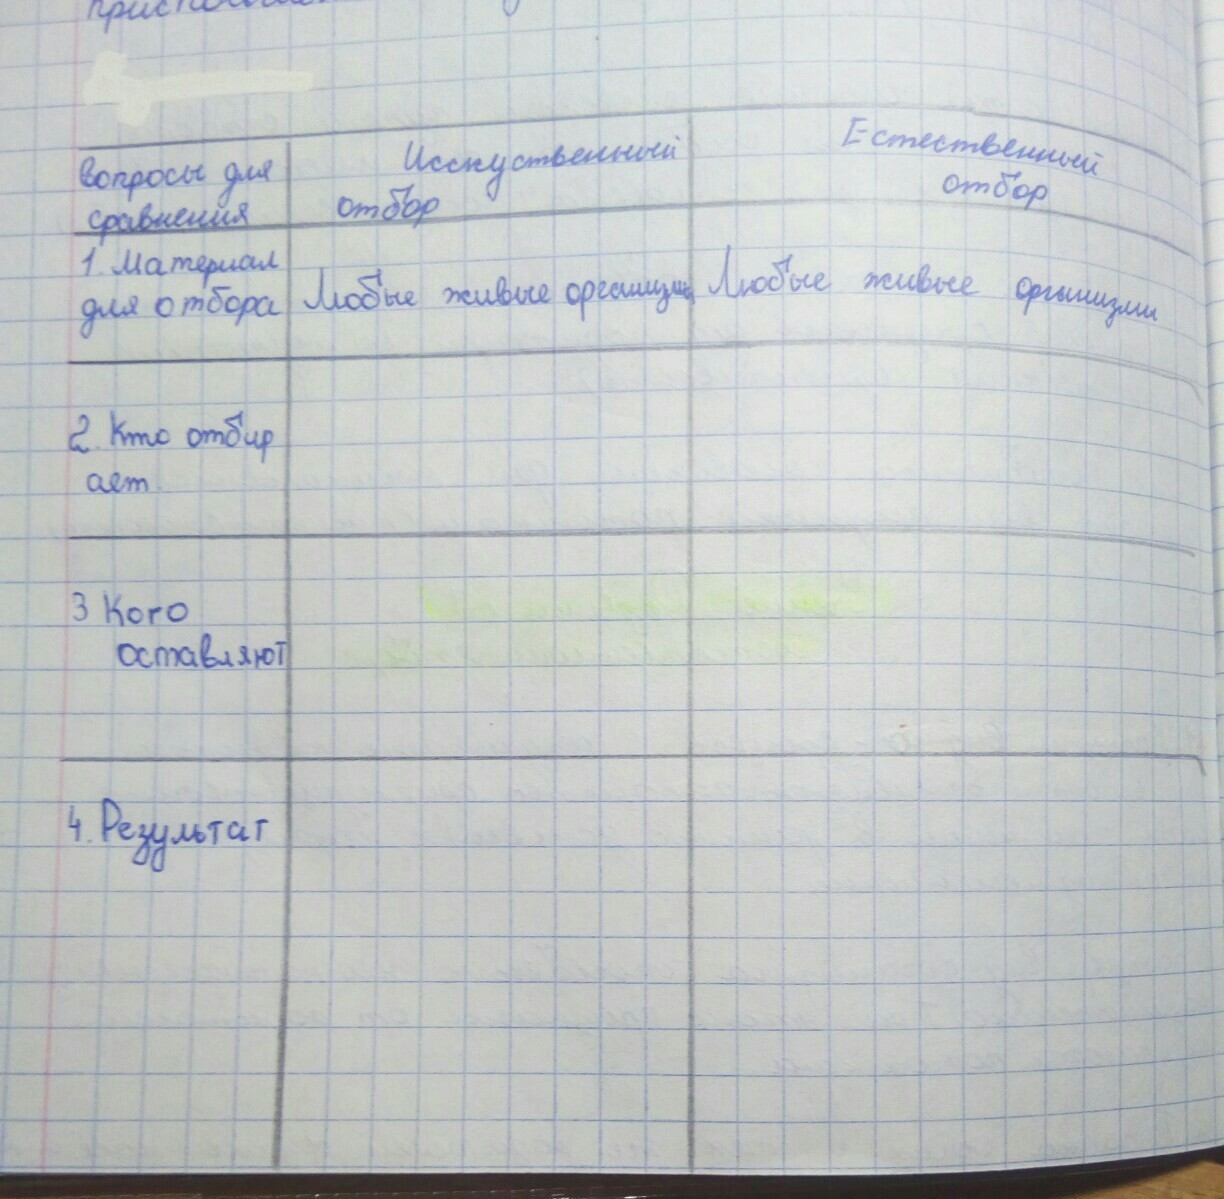 Вопросы для Исскуственный Естественный
сравнения отбор отбор
1. Материал
для отбора Любые живые организмы Любые живые организмы
2. Кто отбир
ает
3 Кого
оставляют
4. Результат